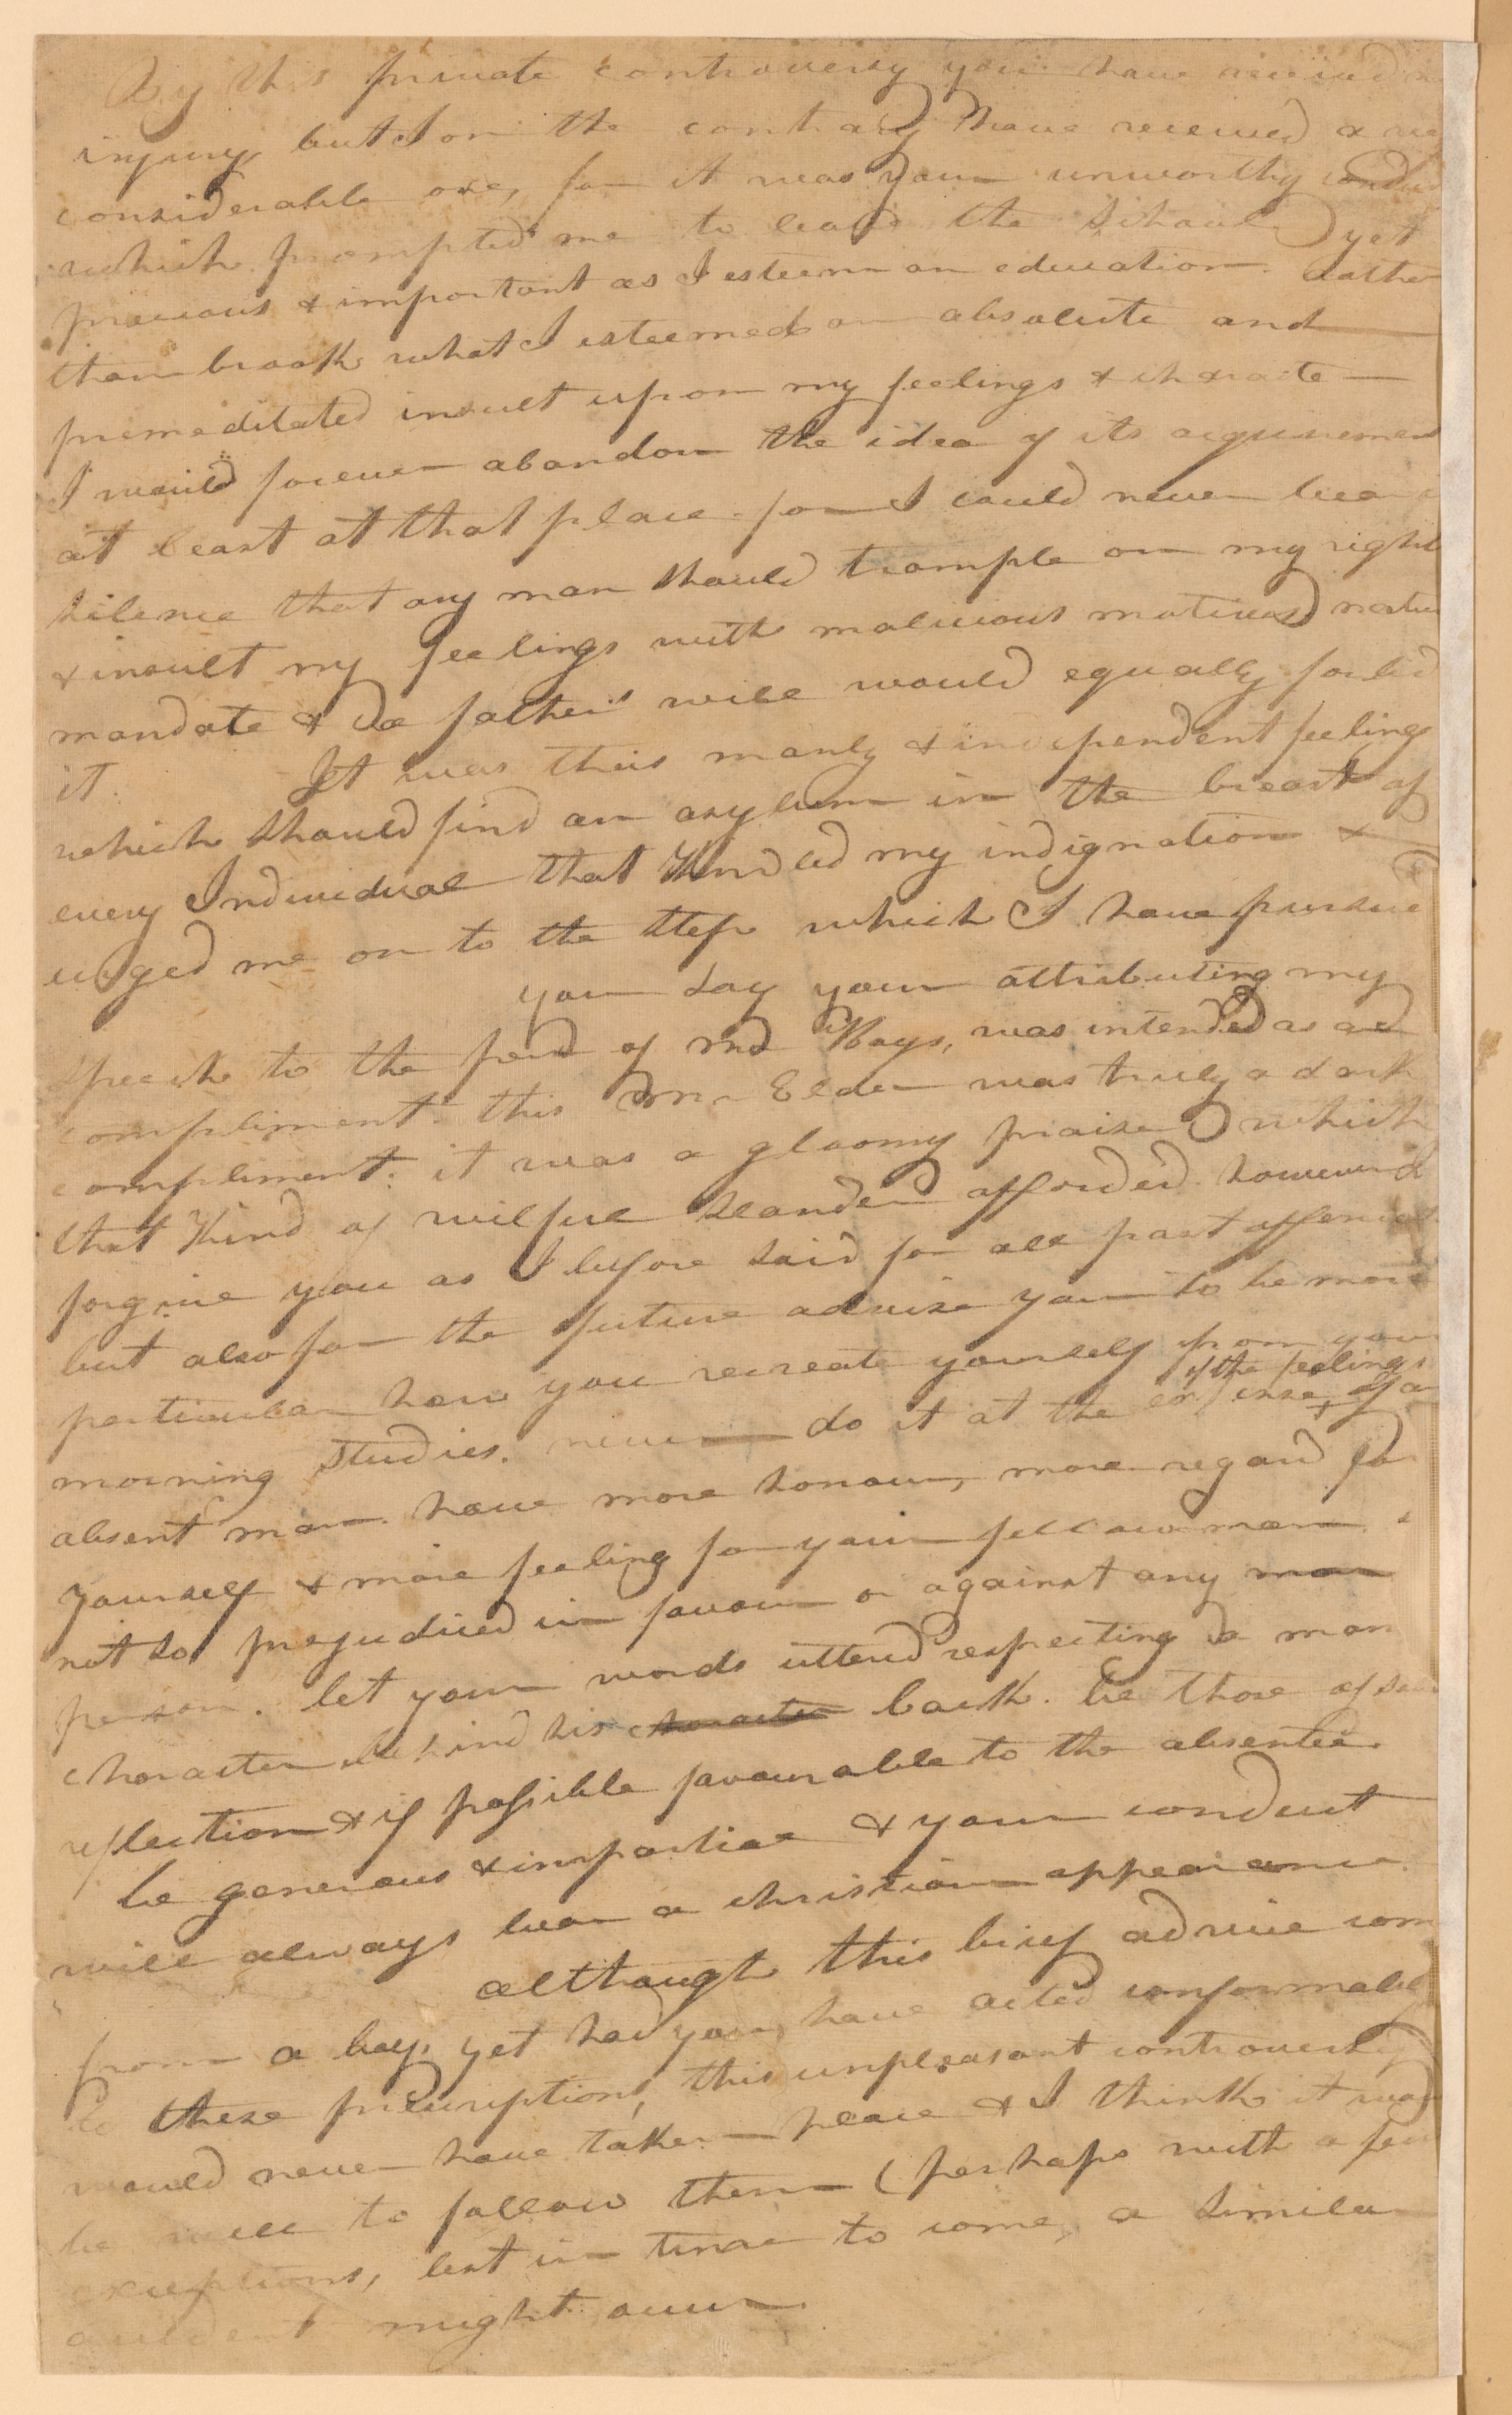 By this private controversy you have received no
injury but I on the contrary have received a ve
considerable one, for it was your unworthy conduc
which prompted me to leave the School yet
precious & important as I esteem an education. Rather
than brook what I esteemed an absolute and
premeditated insult upon my feelings & characte
I would forever abandon the idea of its acquirement
at least at that place. for I could never bear
silence that any man should trample on my right
& insult my feelings with malicious motives natu
mandate & a father's will would equally forbid
it. It was this manly & independent feelings
which should find an asylum in the breast of
every Individual that Kindled my indignation &
urged me on to the step which I have pursue
you say your attributing my
speech to the pend of Boys, was intended as a
compliment. this Mr Elder was truly a dark
compliment: it was a gloomy praise which
that Kind of wilful slander afforded. however
forgive you as I before said for all past offences
but also for the future advise you to be more
particular how you recreate yourself from your
of the feelings
morning studies. never do it at the expense of an
absent man. have more honour, more regard for
yourself & more feeling for your fellow man.
not so prejudiced in favour or against any man
person. let your words uttered respecting a man
character behind his character back. be those of
reflection & if possible favourable to the absentee.
be generous & impartial & your conduct
will always bear a christian appearance
although this brief advice com
from a boy, yet had you have acted conformably
to these prescriptions, this unpleasant controversy
would never have taken place & I think it wou
be well to follow them (perhaps with a few
exceptions, lest in time to come, a similar
accident might occur.